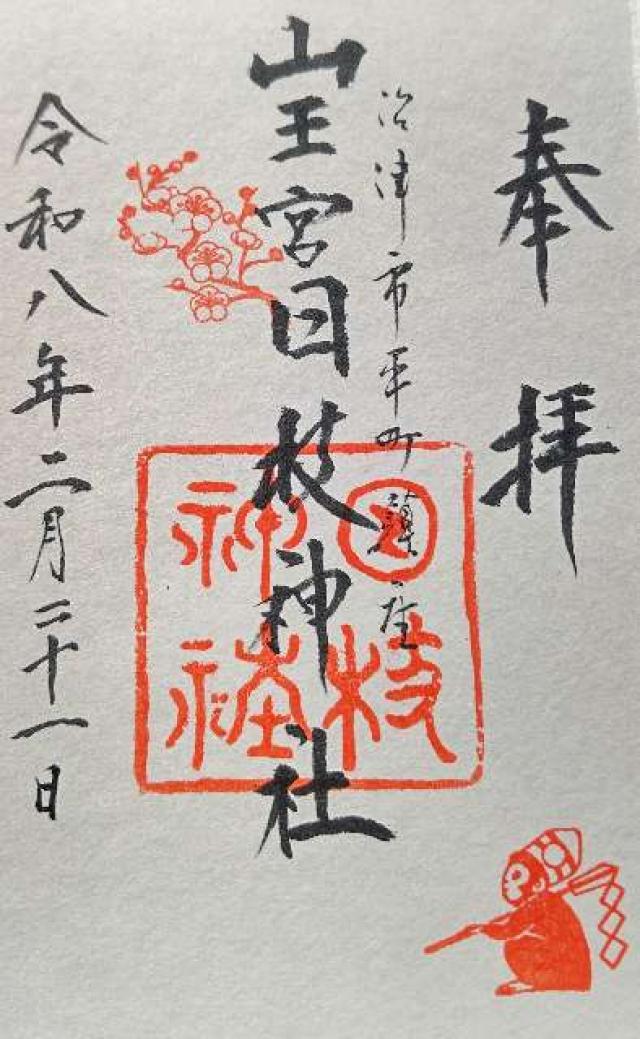 奉拝
沼津市平町鎮座
山王宮日枝神社
日枝神社
令和八年二月二十一日